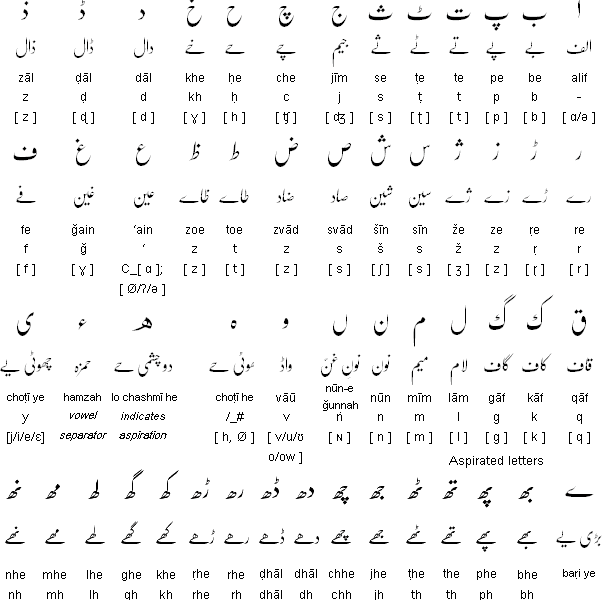 ا ب پ ت ٹ ث ج چ ح خ د ڈ ذ
الف بے پے تے ٹے ثے جیم چے حے خے دال ڈال ذال
zāl ḍāl dāl khe ḥe che jīm se ṭe te pe be alif
z ḍ d kh ḥ c j s ṭ t p b –
[ z ] [ ɖ ] [ d ] [ ɣ ] [ h ] [ ʧ ] [ ʤ ] [ s ] [ ʈ ] [ t ] [ p ] [ b ] [ ɑ/ə ]
ر ڑ ز ژ س ش ص ض ط ظ ع غ ف
رے ڑے زے ژے سین شین صاد ضاد طاے ظاے عین غین فے
fe ğain ‘ain zoe toe zvād svād šīn sīn že ze ṛe re
f ğ ‘ z t z s š s ž z ṛ r
[ f ] [ ɣ ] C_[ ɑ ]; [ z ] [ t ] [ z ] [ s ] [ ʃ ] [ s ] [ ʒ ] [ z ] [ ɽ ] [ r ]
[ Ø/ʔ/ə ]
ق ک گ ل م ن ں و ہ ھ ء ی
قاف کاف گاف لام میم نون نون غنّہ واؤ چھوٹی حے دو چشمی حے حمزہ چھوٹی یے
choṭī ye hamzah lo chashmī he choṭī he vāū nūn-e ğunnah nūn mīm lām gāf kāf qāf
y vowel separator indicates aspiration /_# v ṅ n m l g k q
[j/i/e/ɛ] [ h, Ø ] [ v/u/ʊ o/ow ] [ ɴ ] [ n ] [ m ] [ l ] [ g ] [ k ] [ q ]
Aspirated letters
ے بھ پھ تھ ٹھ جھ چھ دھ ڈھ رھ ڑھ کھ گھ لھ مھ نھ
بڑی یے بھے پھے تھے ٹھے جھے چھے دھے ڈھے رھے ڑھے کھے گھے لھے مھے نھے
nhe mhe lhe ghe khe ṛhe rhe ḍhāl dhāl chhe jhe ṭhe the phe bhe baṛi ye
nh mh lh gh kh ṛh rh ḍh dh ch jh ṭh th ph bh